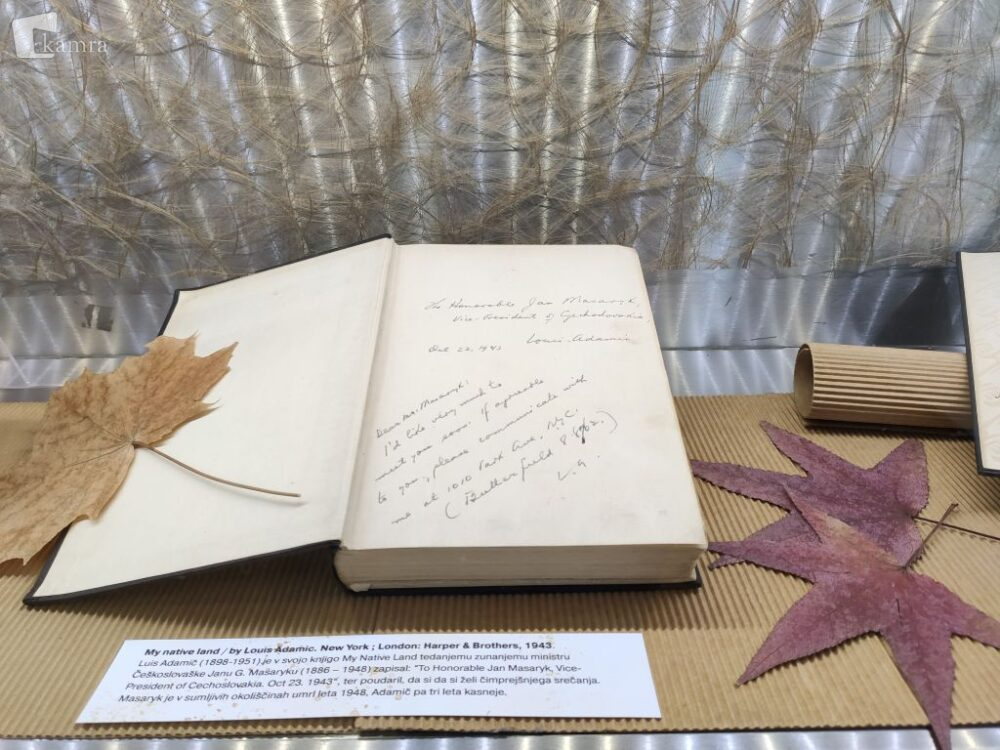 kamra
The Honorable Jan Masaryk,
Vice-President of Czechoslovakia
Oct 23, 1943 Louis Adamic
Dear Mr. Masaryk:
I'd like very much to
meet you soon. If agreeable
to you, please communicate with
me at 1010 Park Ave. N.Y.C.
(Butterfield 8
L.A.
My native land / by Louis Adamic. New York ; London: Harper & Brothers, 1943.
Luis Adamič (1898-1951) je v svojo knjigo My Native Land tedanjemu zunanjemu ministru
Češkoslovaške Janu G. Masaryku (1886 – 1948) zapisal: "To Honorable Jan Masaryk, Vice-
President of Cechoslovakia. Oct 23. 1943", ter poudaril, da si da si želi čimprejšnjega srečanja.
Masaryk je v sumljivih okoliščinah umrl leta 1948, Adamič pa tri leta kasneje.